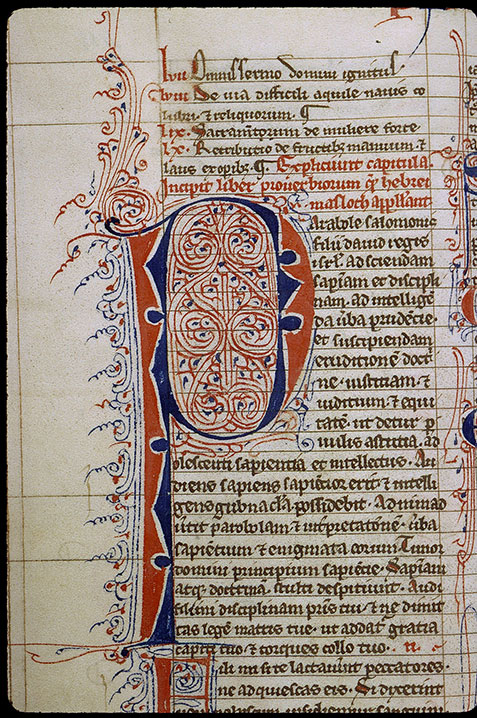 lvii Omnis sermo domini ignitus.
lviii De via difficili aquile navis co
lubri. ⁊ reliquorum. ¶
lix. Sacramentorum de muliere forte
lx. Retributio de fructibꝫ manuum. ⁊
laus ei operibꝫ. ¶. Expliciunt capitula.
Incipit liber proverbiorum qͥ hebrei
masloth appellant
Parabole salomonis
filii david regis
isrl̄. ad sciendam
sapīam et discipli
nam. ad intellige
da ūba prudencie.
et suscipiendam
eruditionē doct
ne. iustitiam. ⁊
iudicium. ⁊ equi
tatē. ut detur p
vulis astutia. ad
olescenti sapientia et intellectus. Au
diens sapiens sapiētior erit. ⁊ intelli
gens gubnac̄la possidebit. Adnimad
vertit parabolam ⁊ intp̄retationē. ūba
sapiētuum ⁊ enigmata eorum. Timor
domini principium sapiētie. Sapiam
atqꝫ doctrinā. stulti despiciunt. Audi
fili mi disciplinam pr̄is tui. ⁊ ne dimit
tas legē matris tue. ut addat̄ gratia
capiti tuo ⁊ torques collo tuo.
Fili mi si te lactaverint peccatores.
ne adquiescas eis. Si dixerint